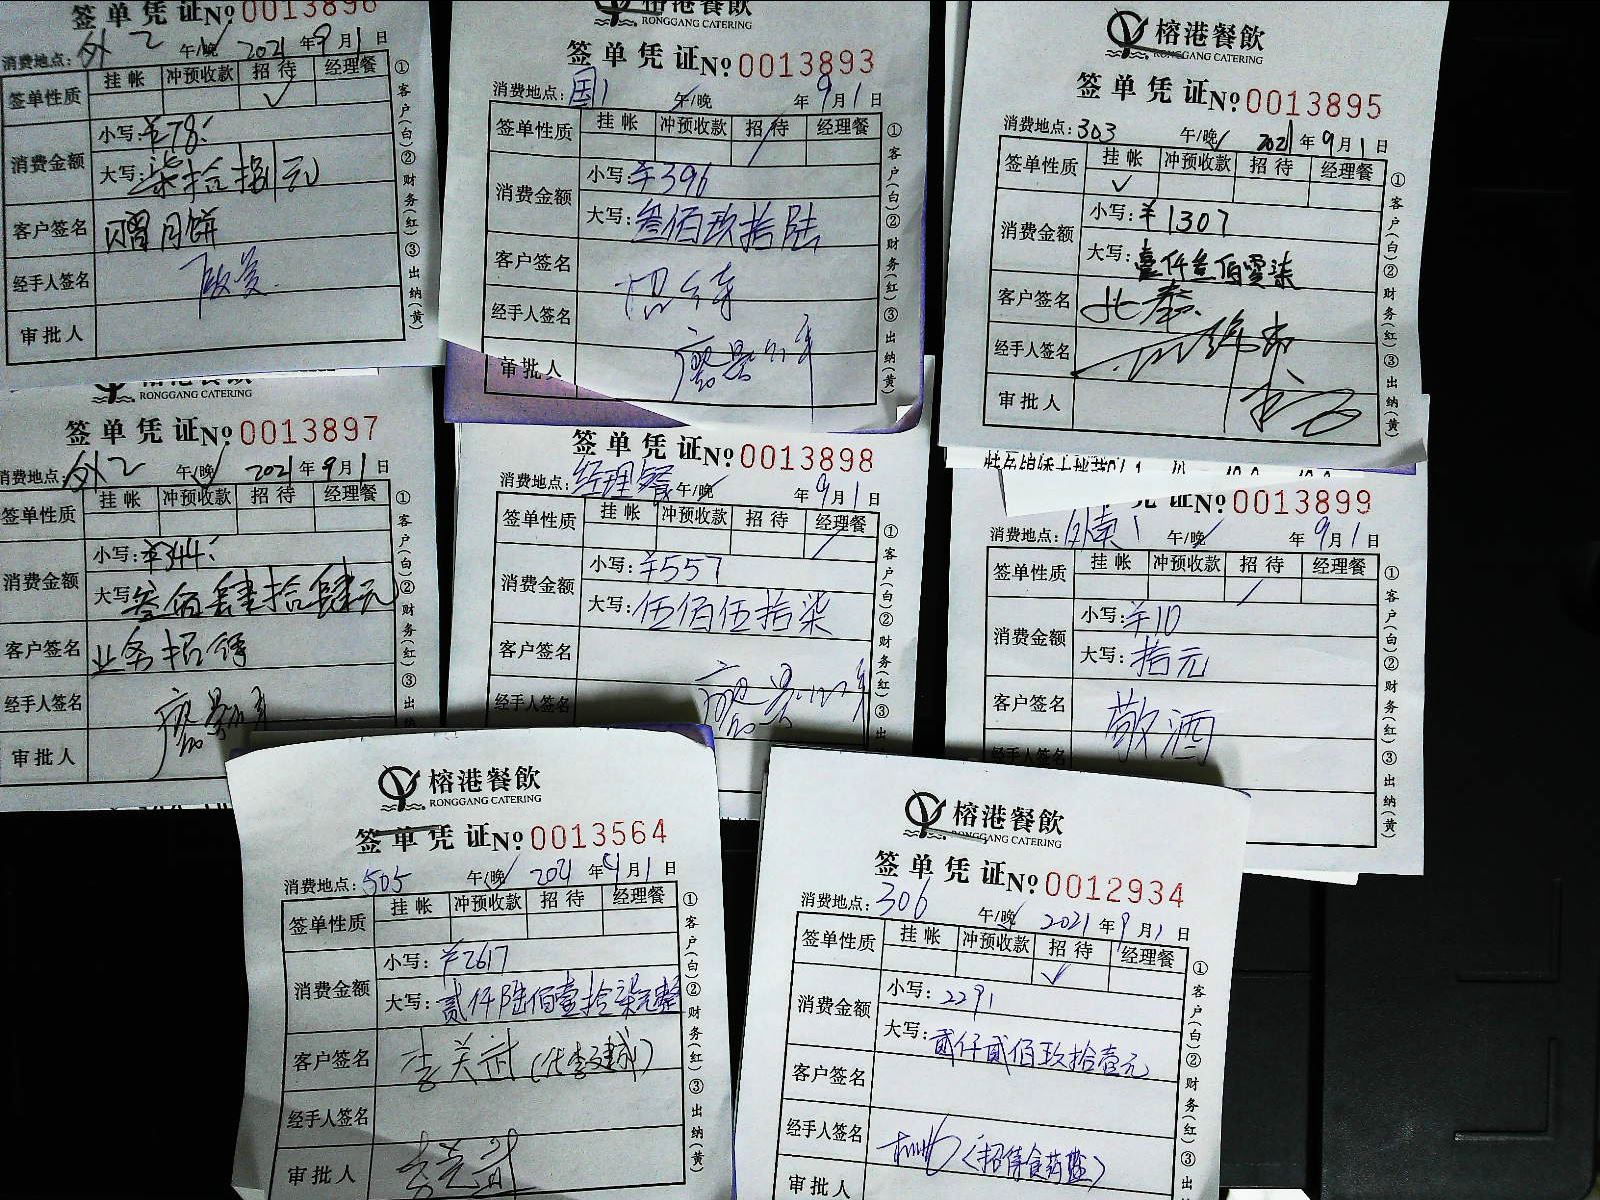 签单凭证№0013896
消费地点: 外乙 午/晚 2021年9月1日
签单性质 挂帐 冲预收款 招待 经理餐
✓
消费金额 小写:¥78
大写: 柒拾捌元
客户签名 赠月饼
经手人签名
审批人
①客户(白)②财务(红)③出纳(黄)
RONGGANG CATERING
签单凭证№0013893
消费地点: 国1 午/晚 年9月1日
签单性质 挂帐 冲预收款 招待 经理餐
消费金额 小写:¥396
大写: 叁佰玖拾陆
客户签名 招待
经手人签名
审批人
①客户(白)②财务(红)③出纳(黄)
榕港餐飲
RONGGANG CATERING
签单凭证№0013895
消费地点: 303 午/晚 2021年9月1日
签单性质 挂帐 冲预收款 招待 经理餐
✓
消费金额 小写:¥1307
大写: 壹仟叁佰零柒
客户签名
经手人签名
审批人
①客户(白)②财务(红)③出纳(黄)
榕港餐飲
RONGGANG CATERING
签单凭证№0013897
消费地点: 外乙 午/晚 2021年9月1日
签单性质 挂帐 冲预收款 招待 经理餐
消费金额 小写:¥344
大写: 叁佰肆拾肆元
客户签名 业务招待
经手人签名
审批人
①客户(白)②财务(红)③出纳
签单凭证№0013898
消费地点: 经理餐 午/晚 年9月1日
签单性质 挂帐 冲预收款 招待 经理餐
消费金额 小写:¥557
大写: 伍佰伍拾柒
客户签名
经手人签名
①客户(白)②财务(红)③出
凭证№0013899
消费地点: 午/晚 年9月1日
签单性质 挂帐 冲预收款 招待 经理餐
消费金额 小写:¥10
大写: 拾元
客户签名 敬酒
经手人签名
①客户(白)②财务(红)③出纳(黄)
榕港餐飲
RONGGANG CATERING
签单凭证№0013564
消费地点: 505 午/晚 2021年9月1日
签单性质 挂帐 冲预收款 招待 经理餐
消费金额 小写:¥2617
大写: 贰仟陆佰壹拾柒元整
客户签名
经手人签名
审批人
①客户(白)②财务(红)③出纳(黄)
榕港餐飲
RONGGANG CATERING
签单凭证№0012934
消费地点: 306 午/晚 2021年9月1日
签单性质 挂帐 冲预收款 招待 经理餐
✓
消费金额 小写: 2291
大写: 贰仟贰佰玖拾壹元
客户签名
经手人签名 (招待食药监)
审批人
①客户(白)②财务(红)③出